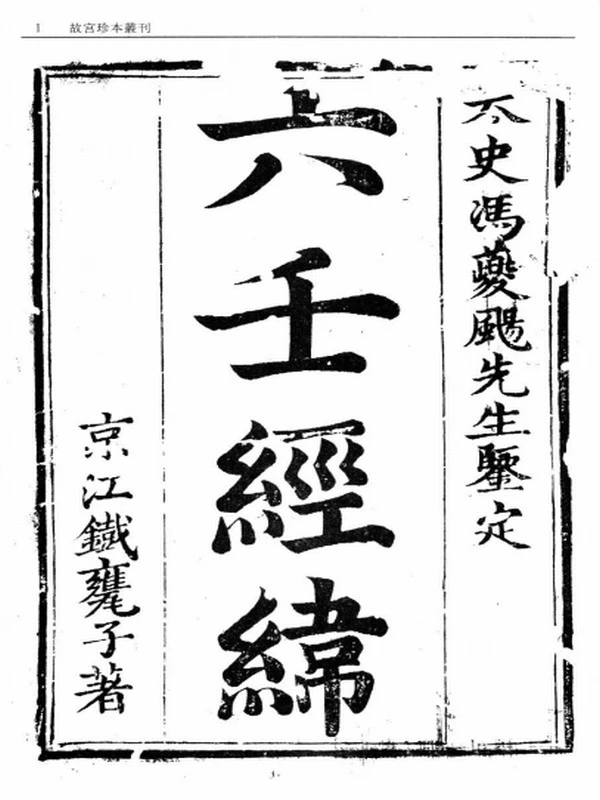 I 故宮珍本叢刊
太史馮夔颺先生鑒定
六壬經緯
京江鐵甕子著